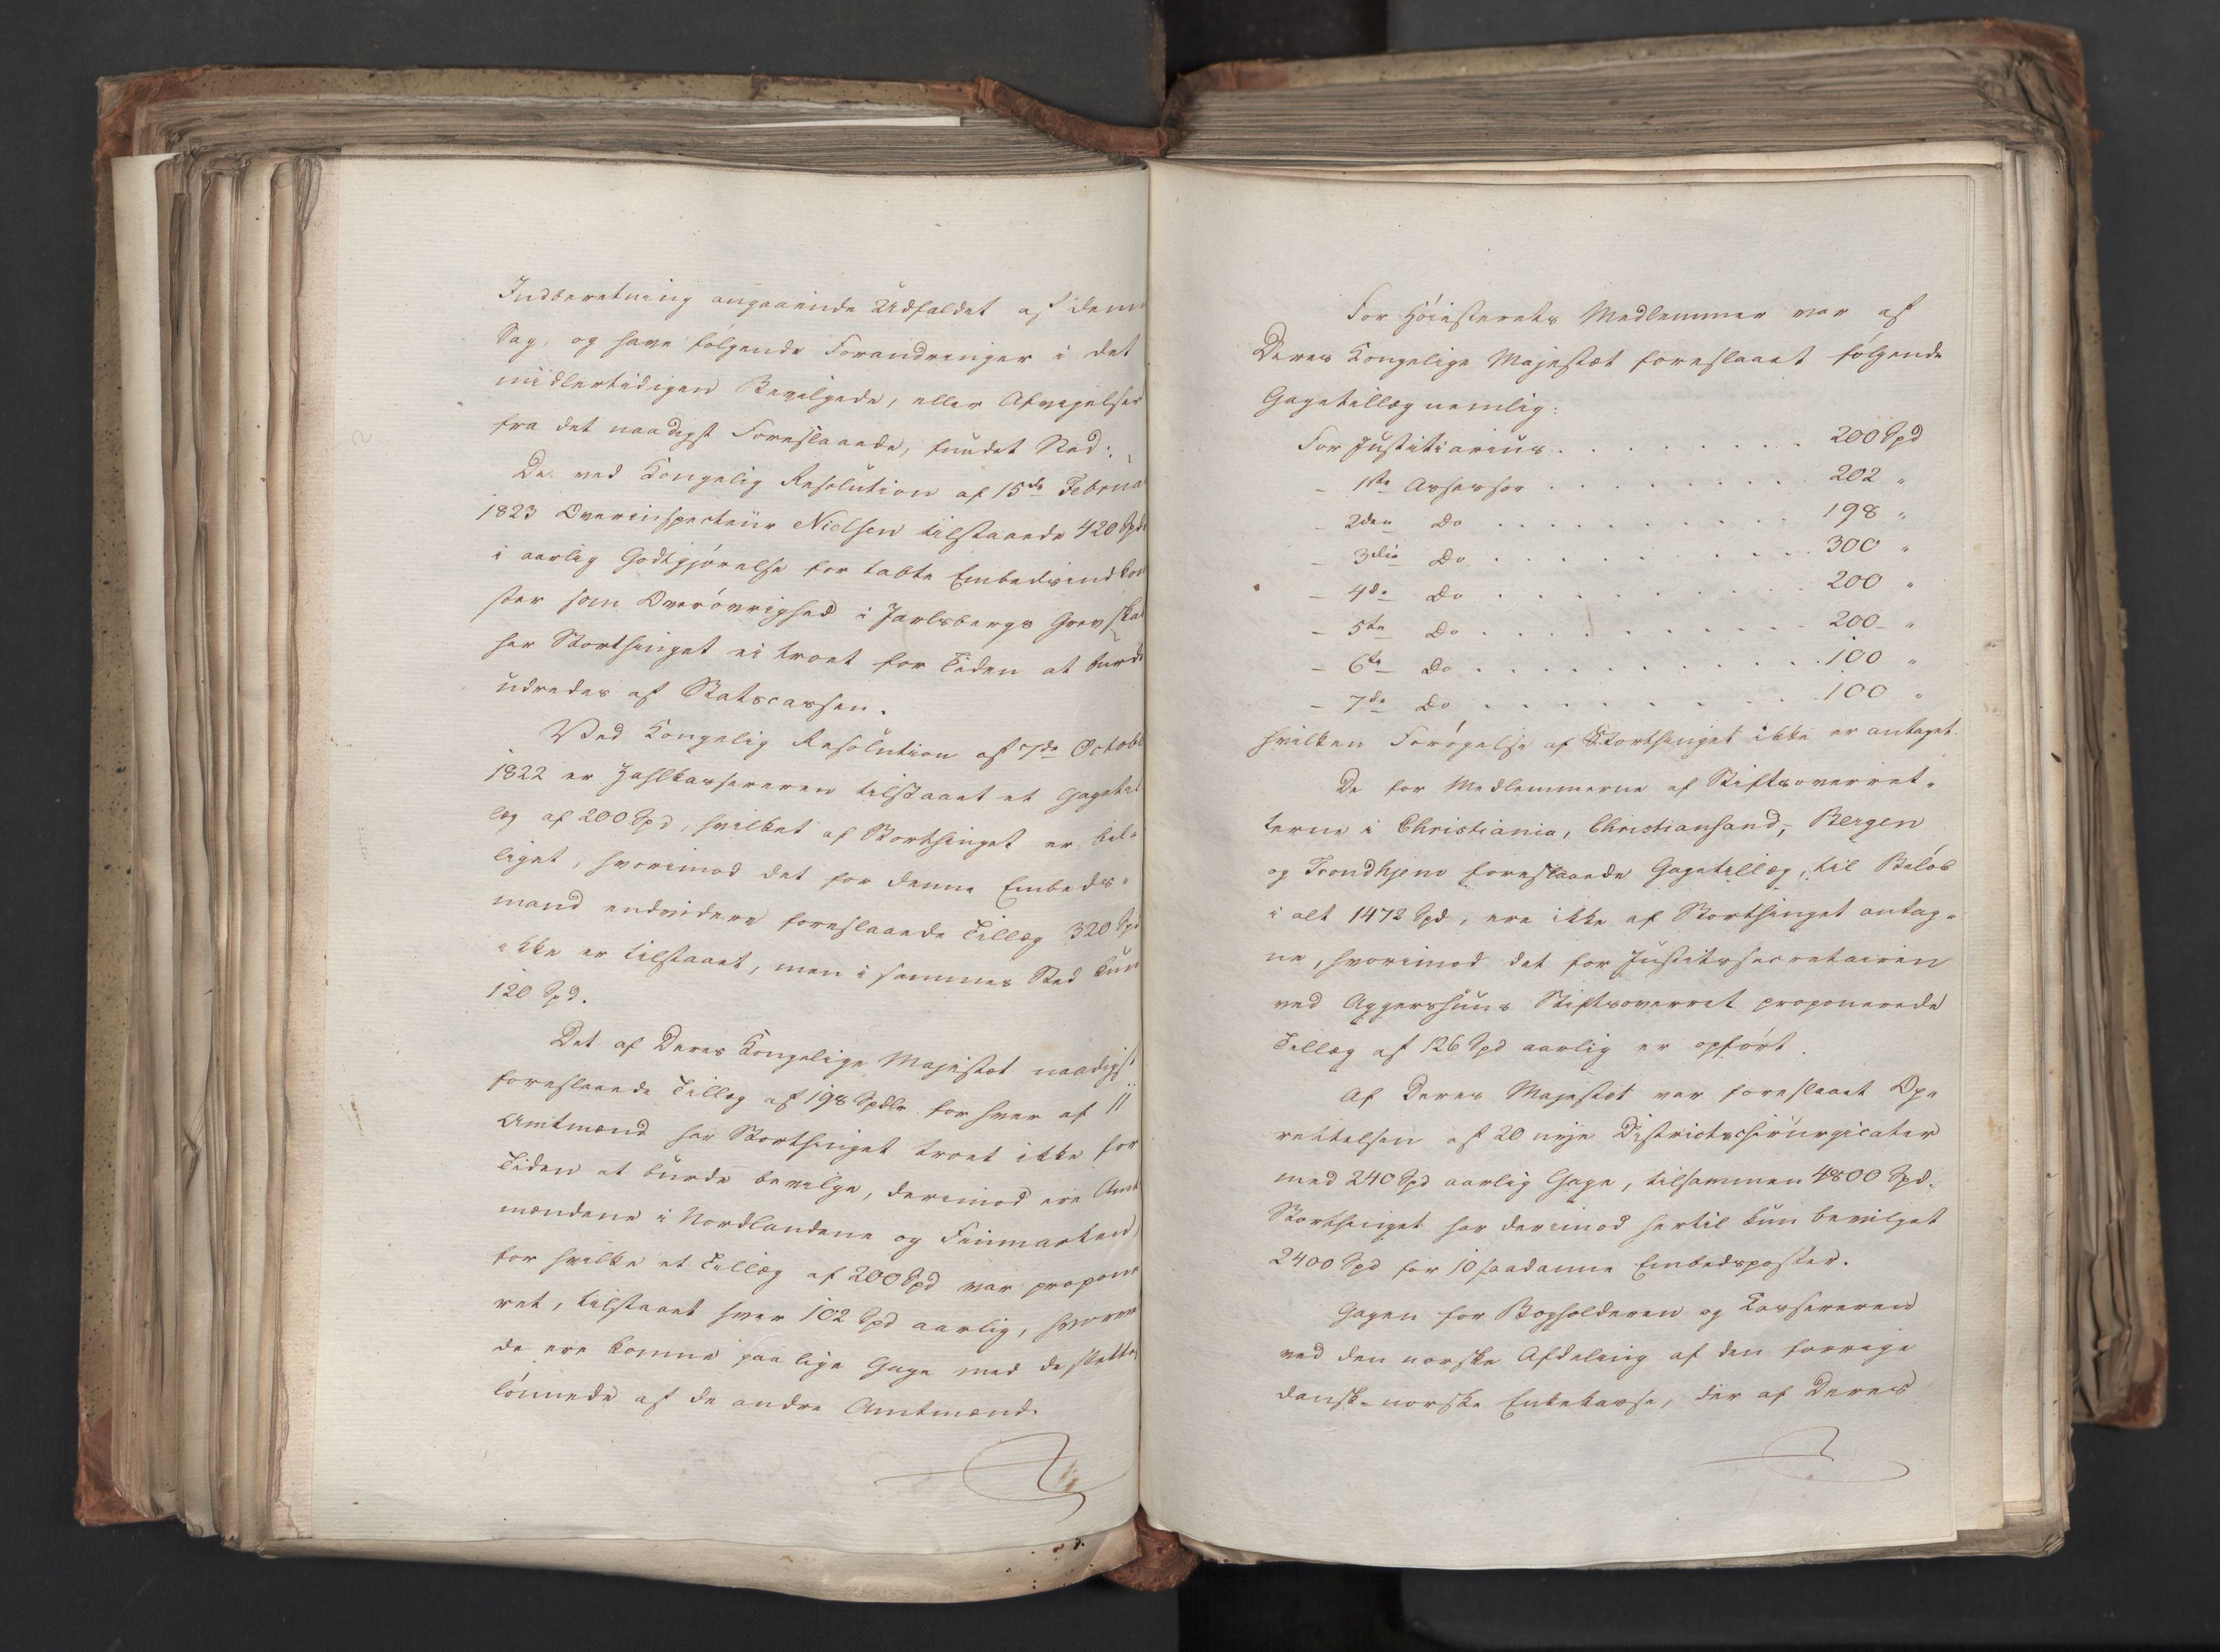 Indberetning angaaende Udfaldet af denn
Sag, og have følgende Forandringer i det
midlertidigen Bevilgede, eller Afvigelser
fra det naadigst Foreslaaede, fundet Sted:
De ved Kongelig Resolution af 15de Februa
1823 Overinspecteur Nielsen tilstaaede 420 Spd
i aarlig Godtgjørelse for tabte Embedsindkom
ster som Overøvrighed i Jarlsbergs Grevska
har Storthinget ei troet for Tiden at burde
udredes af Statscassen.
Ved Kongelig Resolution af 7de Octobe
1822 er Zahlkassereren tilstaaet et Gagetil
læg af 200 Spd, hvilket af Storthinget er bil-
liget, hvorimod det for denne Embeds-
mand endvidere foreslaaede Tillæg 320 Spd
ikke er tilstaaet, men i sammes Sted kun
120 Spd.
Det af Deres Kongelige Majestæt naadigst
foreslaaede Tillæg af 198 Spdlr for hver af 11
Amtmænd har Storthinget troet ikke for
Tiden at burde bevilge, derimod ere Amt
mændene i Nordlandene og Finmarken
for hvilke et Tillæg af 200 Spd var propone
ret, tilstaaet hver 102 Spd aarlig, hvorved
de ere komne paa lige Gage med de slettest
lønnede af de andre Amtmænd.
For Høiesterets Medlemmer var af
Deres Kongelige Majestæt foreslaaet følgende
Gagetillæg nemlig:
For Justitiarius . . . . . . . 200 Spd
– 1ste Assessor . . . . . . . . 202 "
– 2den Do . . . . . . . . . . 198 "
– 3die Do . . . . . . . . . . 300 "
– 4de Do . . . . . . . . . . 200 "
– 5te Do . . . . . . . . . . 200 "
– 6te Do . . . . . . . . . . 100 "
– 7de Do . . . . . . . . . . 100 "
hvilken Forøgelse af Storthinget ikke er antaget.
De for Medlemmerne af Stiftsoverret-
terne i Christiania, Christiansand, Bergen
og Trondhjem foreslaaede Gagetillæg, til Beløb
i alt 1472 Spd, ere ikke af Storthinget antag-
ne, hvorimod det for Justitssecretairen
ved Aggershuus Stiftsoverret proponerede
Tillæg af 126 Spd aarlig er opført.
Af Deres Majestæt var foreslaaet Op-
rettelsen af 20 nye Districtschirurgicater
med 240 Spd aarlig Gage, tilsammen 4800 Spd.
Storthinget har derimod hertil kun bevilget
2400 Spd for 10 saadanne Embedsposter.
Gagen for Bogholderen og Kassereren
ved den norske Afdeling af den forrige
dansk-norske Enkekasse, der af Deres